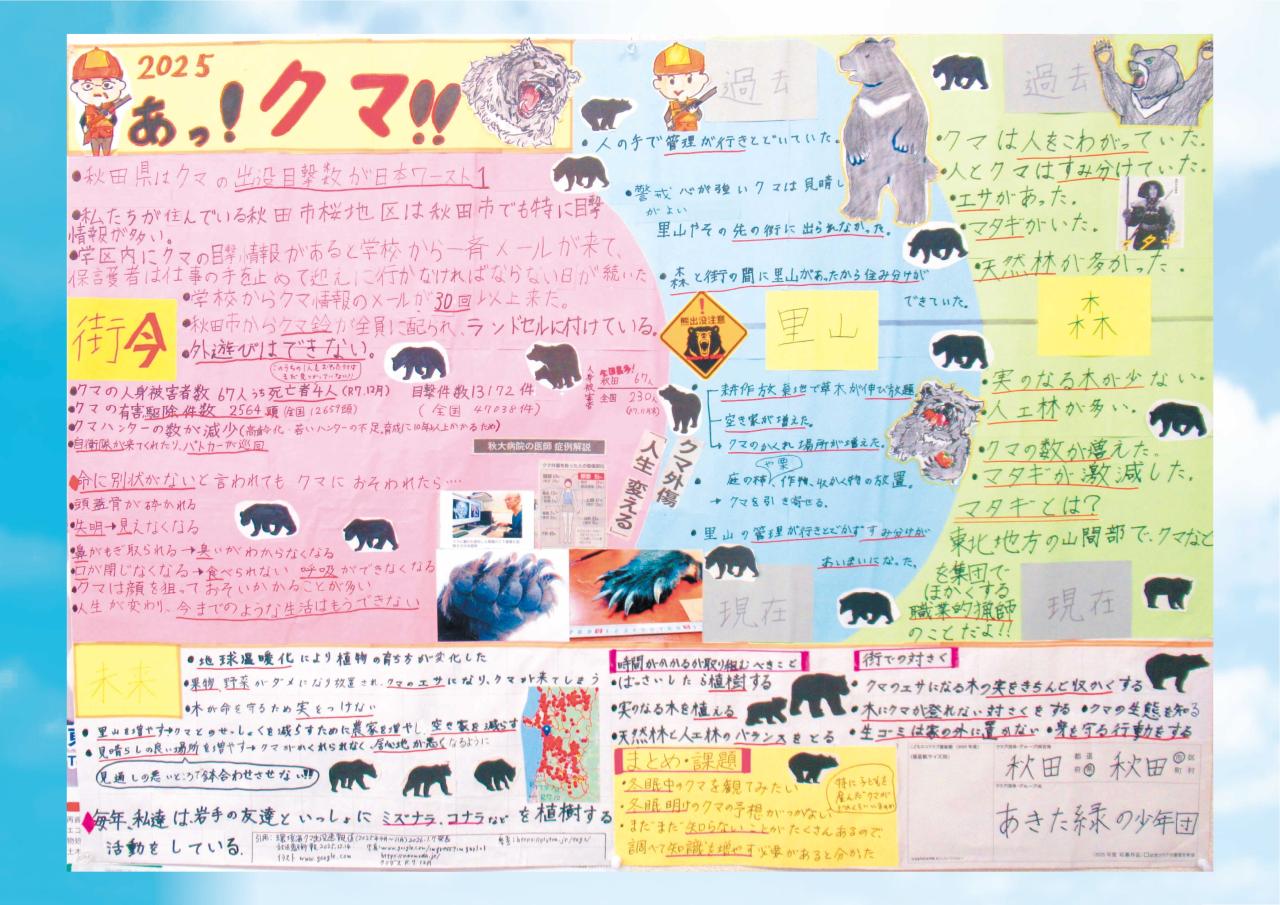 2025
あっ!クマ!!
●秋田県はクマの出没目撃数が日本ワースト1
●私たちが住んでいる秋田市桜地区は秋田市でも特に目撃
情報が多い。
●学区内にクマの目撃情報があると学校から一斉メールが来て、
保護者は仕事の手を止めて迎えに行かなければならない日が続いた
●学校からクマ情報のメールが30回以上来た。
●秋田市からクマ鈴が全員に配られ、ランドセルに付けている。
●外遊びはできない。
街 今
●クマの人身被害者数 67人うち死亡者4人(R7.12月)
目撃件数13172件
●クマの有害駆除件数 2564頭(全国12659頭)
(全国 47038件)
●クマハンターの数が減少(高齢化・若いハンターの不足、育成に10年以上かかるため)
●自衛隊が来てくれたり、パトカーが巡回
人身被害者
秋田 67人
全国 230人
♦命に別状がないと言われても クマに おそわれたら…
●頭蓋骨が砕かれる
●失明→見えなくなる
●鼻がもぎ取られる→臭いがわからなくなる
●口が閉じなくなる→食べられない 呼吸ができなくなる
●クマは顔を狙っておそいかかることが多い
●人生が変わり、今までのような生活はもうできない
秋大病院の医師 症例解説
クマ外傷
「人生 変える」
過去
●人の手で管理が行きとどいていた。
●警戒心が強いクマは見晴し
がよい
里山やその先の街に出られなかった。
●森と街の間に里山があったから住み分けが
できていた。
熊出没注意
里山
●耕作放棄地で草木が伸び放題
空き家が増えた。
→クマのかくれ場所が増えた。
や栗
●庭の柿、作物、収かく物の放置。
→クマを引き寄せる。
●里山の管理が行きとどかずすみ分けが
あいまいになった。
現在
過去
●クマは人をこわがっていた。
●人とクマはすみ分けていた。
●エサがあった。
●マタギがいた。
●天然林が多かった。
マタギ
森
●実のなる木が少ない。
●人工林が多い。
●クマの数が増えた。
●マタギが激減した。
マタギとは?
東北地方の山間部で、クマなど
を集団で
ほかくする
職業的猟師
のことだよ!!
現在
未来
●地球温暖化により植物の育ち方が変化した
●果物、野菜がダメになり放置され、クマのエサになり、クマが来てしまう
●木が命を守るため実をつけない
●里山を増やす→クマとのせっしょくを減らすために農家を増やし、空き家を減らす
●見晴らしの良い場所を増やす→クマがかくれられなく、居心地が悪くなるように
見通しの悪いところで鉢合わせさせない!!!
♦毎年、私達は岩手の友達といっしょに ミズナラ、コナラなど を植樹する
活動をしている。
時間がかかるが取り組むべきこと
●ばっさいしたら植樹する
●実のなる木を植える
●天然林と人工林のバランスをとる
街での対さく
●クマのエサになる木の実をきちんと収かくする
●木にクマが登れない対さくをする ●クマの生態を知る
●生ゴミは家の外に置かない ●身を守る行動をする
まとめ・課題
●冬眠中のクマを観てみたい
●冬眠明けのクマの予想がつかない
●まだまだ知らないことがたくさんあるので
調べて知識を増やす必要があると分かった
特に子どもを
産んだクマが
秋田 都道府県 秋田 市区町村
あきた緑の少年団